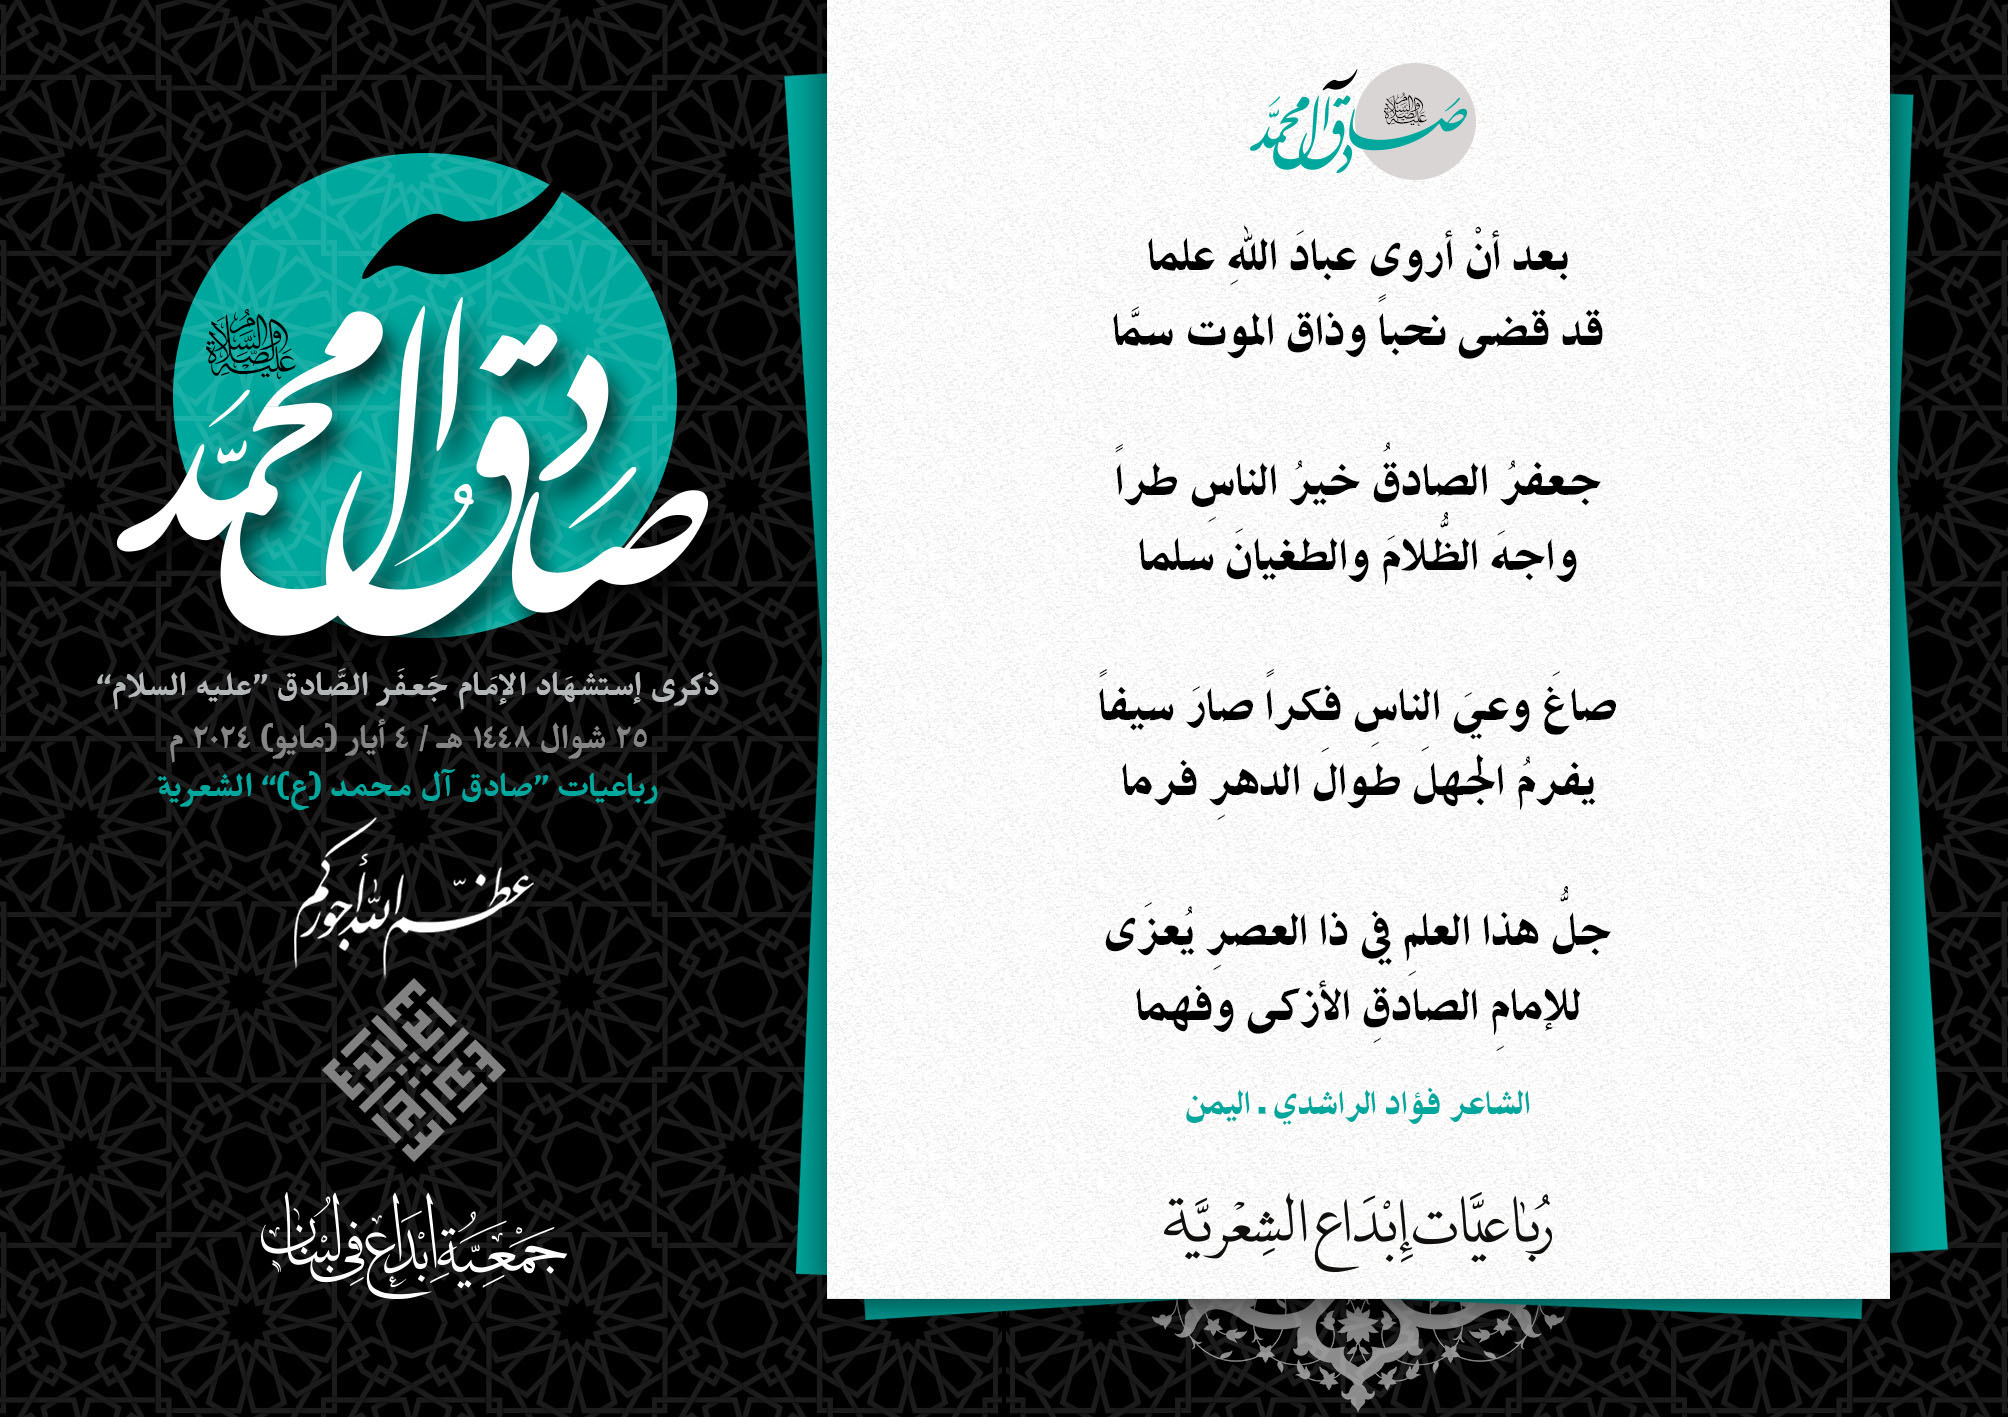 صادق آل محمد
عليه الصلاة والسلام
بعد أنْ أروى عبادَ اللهِ علما
قد قضى نحباً وذاق الموت سمَّا
جعفرُ الصادقُ خيرُ الناسِ طراً
واجهَ الظُّلامَ والطغيانَ سلما
صاغَ وعيَ الناسِ فكراً صارَ سيفاً
يفرمُ الجهلَ طوالَ الدهرِ فرما
جلُّ هذا العلمِ في ذا العصرِ يُعزَى
للإمامِ الصادقِ الأزكى وفهما
الشاعر فؤاد الراشدي ـ اليمن
رُبَاعيَّات إِبْدَاع الشِعْريَّة
صادق آل محمَّد
عليه الصلاة والسلام
ذكرى إستشهَاد الإمَام جَعفَر الصَّادق ”عليه السلام“
٢٥ شوال ١٤٤٨ هـ / ٤ أيار (مايو) ٢٠٢٤ م
رباعيات ”صادق آل محمد (ع)“ الشعرية
عظّم الله أجوركم
جَمْعِيَّة إبْدَاع فِي لُبْنَان